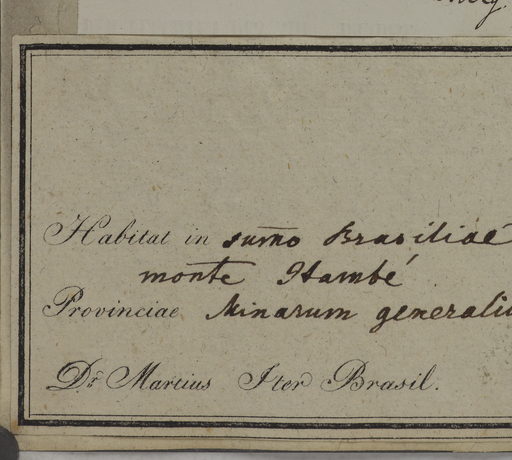 Habitat in sum̄o Brasiliae
monte Itambé
Provinciae Minarum generaliu
Dr. Martius Iter Brasil.